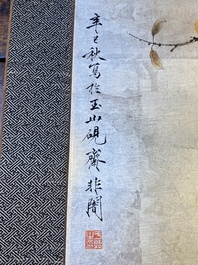 辛巳秋写於玉山砚齋非闇